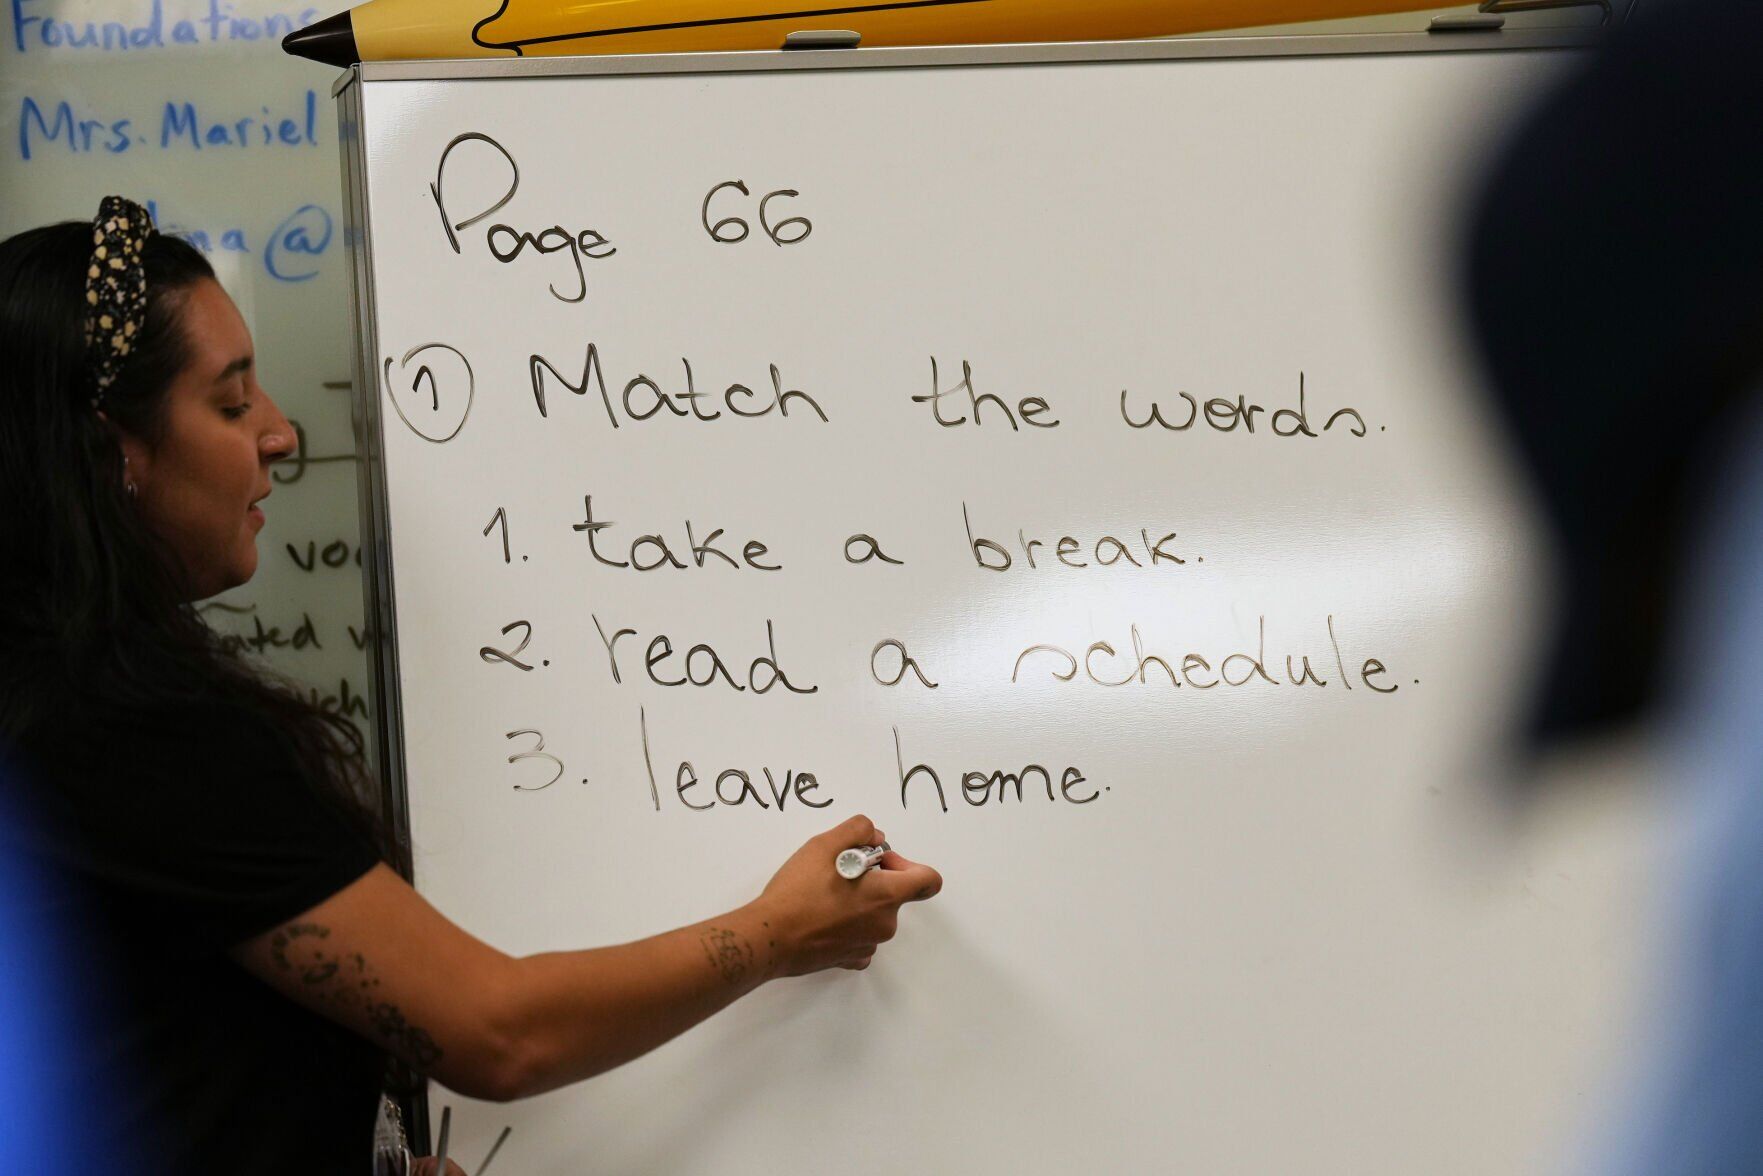 Foundations
Mrs. Mariel
@
Page 66
1 Match the words.
1. take a break.
2. read a schedule.
3. leave home.